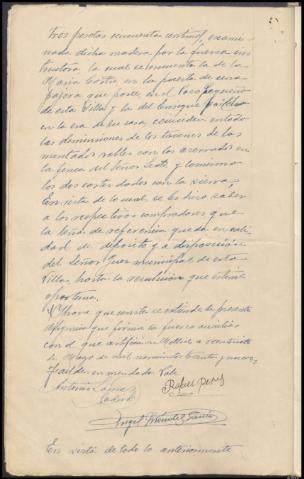 Tres pesetas cincuenta centimos, exami-
nada dicha madera por la fuerza ins-
tructora la cual se encuentra la de la
Maria Cortes, en la puerta de una
pajera que posee en el
de esta Villa y la del Enrique
en la era de su casa, coinciden en todo
las dimensiones de los trozos de los
mentados robles con los aserrados en
la finca del Señor y lo mismo
los dos cortes dados con la sierra,
En vista de lo cual se les hizo saber
a los respectivos compradores que
la leña de referencia queda en cali-
dad de depósito y a disposición
del Señor Juez Municipal de esta
Villa, hasta la resolución que estime
oportuna.
Y para que conste se extiende la presente
diligencia que firma la fuerza
con el que certifico en a veintisiete
de Mayo de mil novecientos cuarenta y nueve,
Vale
Antonio
Rafael Perez
Angel Mendez
En vista de todo lo anteriormente